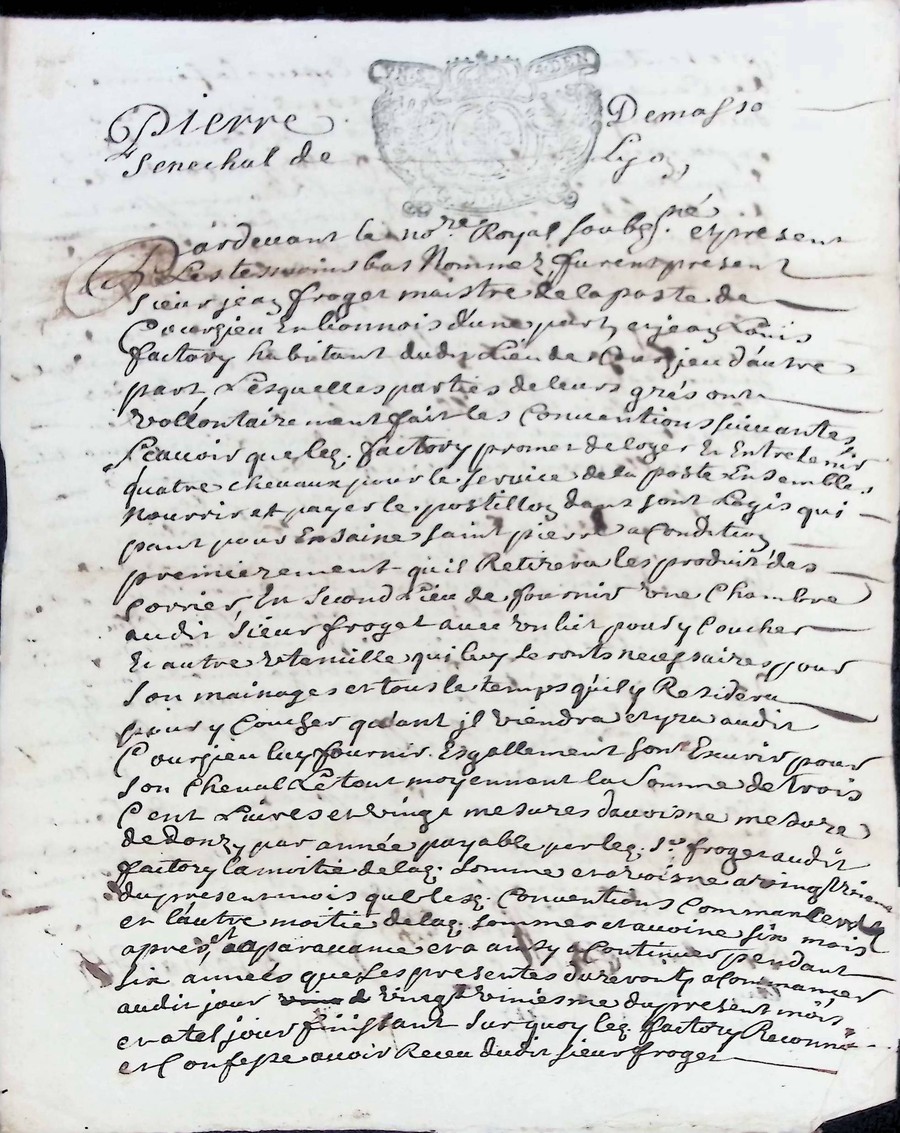 Pierre Demasso
Senechal de Lyon,
Pardevant le no.re Royal soubs.né et present
Les tesmoins bas Nommez furent present
Sieur jean froget maistre de la poste de
Courzieu En lionnois d'une part, et jean Louis
factory habitant dudit Lieu de Courzieu d'autre
part, Lesquelles parties de leurs grés ont
vollontairement fait les Conventions suivantes
sCavoir que led. factory promet de loger Et Entretenir
quatre chevaux pour le service de la poste Ensembles
Nourrir et payer le postillon dans sont Logis qui
pant pour Enseine saint pierre a Condition
premierement qu'il Retirera les produit des
Corrier, En second Lieu de fournir une Chambre
audit sieur froget avec un lit pour y Coucher
Et autre utensille qui luy seronts necessaires pour
son mainages et tous le temps qu'il y Residera
pour y Coucher qu'ant jl viendra et yra audit
Courzieu luy fournir Esgallement sont Escurir pour
son Cheval Le tout moyennant la somme de trois
Cent Livres et vingt mesures d'avoisne mesure
de Donzy par année payable par led. sr. froget audit
factory la moitié delad. somme et avoisne a vingt
du present mois que lesd. Conventions Commanceront
et l'autre moitié delad. sommes et avoine six mois
apres, et et a ainsy a Continuer pendant
six années que Les presentes dureront, a Commancer
audit jour vingt du present mois
et a tel jour finissant sur quoy led. factory Reconnu
et Confesse avoir Receu dudit sieur froget